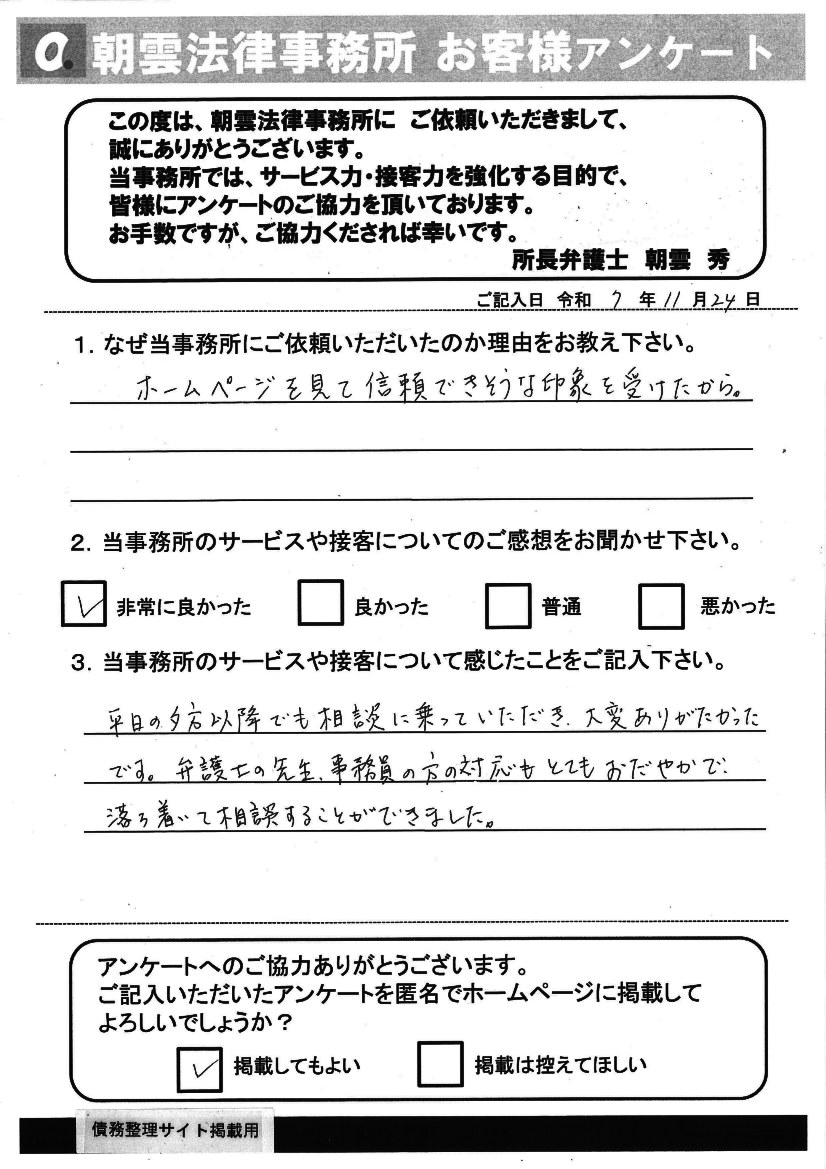 a. 朝雲法律事務所 お客様アンケート
この度は、朝雲法律事務所に ご依頼いただきまして、
誠にありがとうございます。
当事務所では、サービス力・接客力を強化する目的で、
皆様にアンケートのご協力を頂いております。
お手数ですが、ご協力くだされば幸いです。
所長弁護士 朝雲 秀
ご記入日 令和 7 年 11 月 24 日
1. なぜ当事務所にご依頼いただいたのか理由をお教え下さい。
ホームページを見て信頼できそうな印象を受けたから。
2. 当事務所のサービスや接客についてのご感想をお聞かせ下さい。
非常に良かった 良かった 普通 悪かった
3. 当事務所のサービスや接客について感じたことをご記入下さい。
平日の夕方以降でも相談に乗っていただき、大変ありがたかった
です。弁護士の先生、事務員の方の対応もとてもおだやかで、
落ち着いて相談することができました。
アンケートへのご協力ありがとうございます。
ご記入いただいたアンケートを匿名でホームページに掲載して
よろしいでしょうか？
掲載してもよい 掲載は控えてほしい
債務整理サイト掲載用